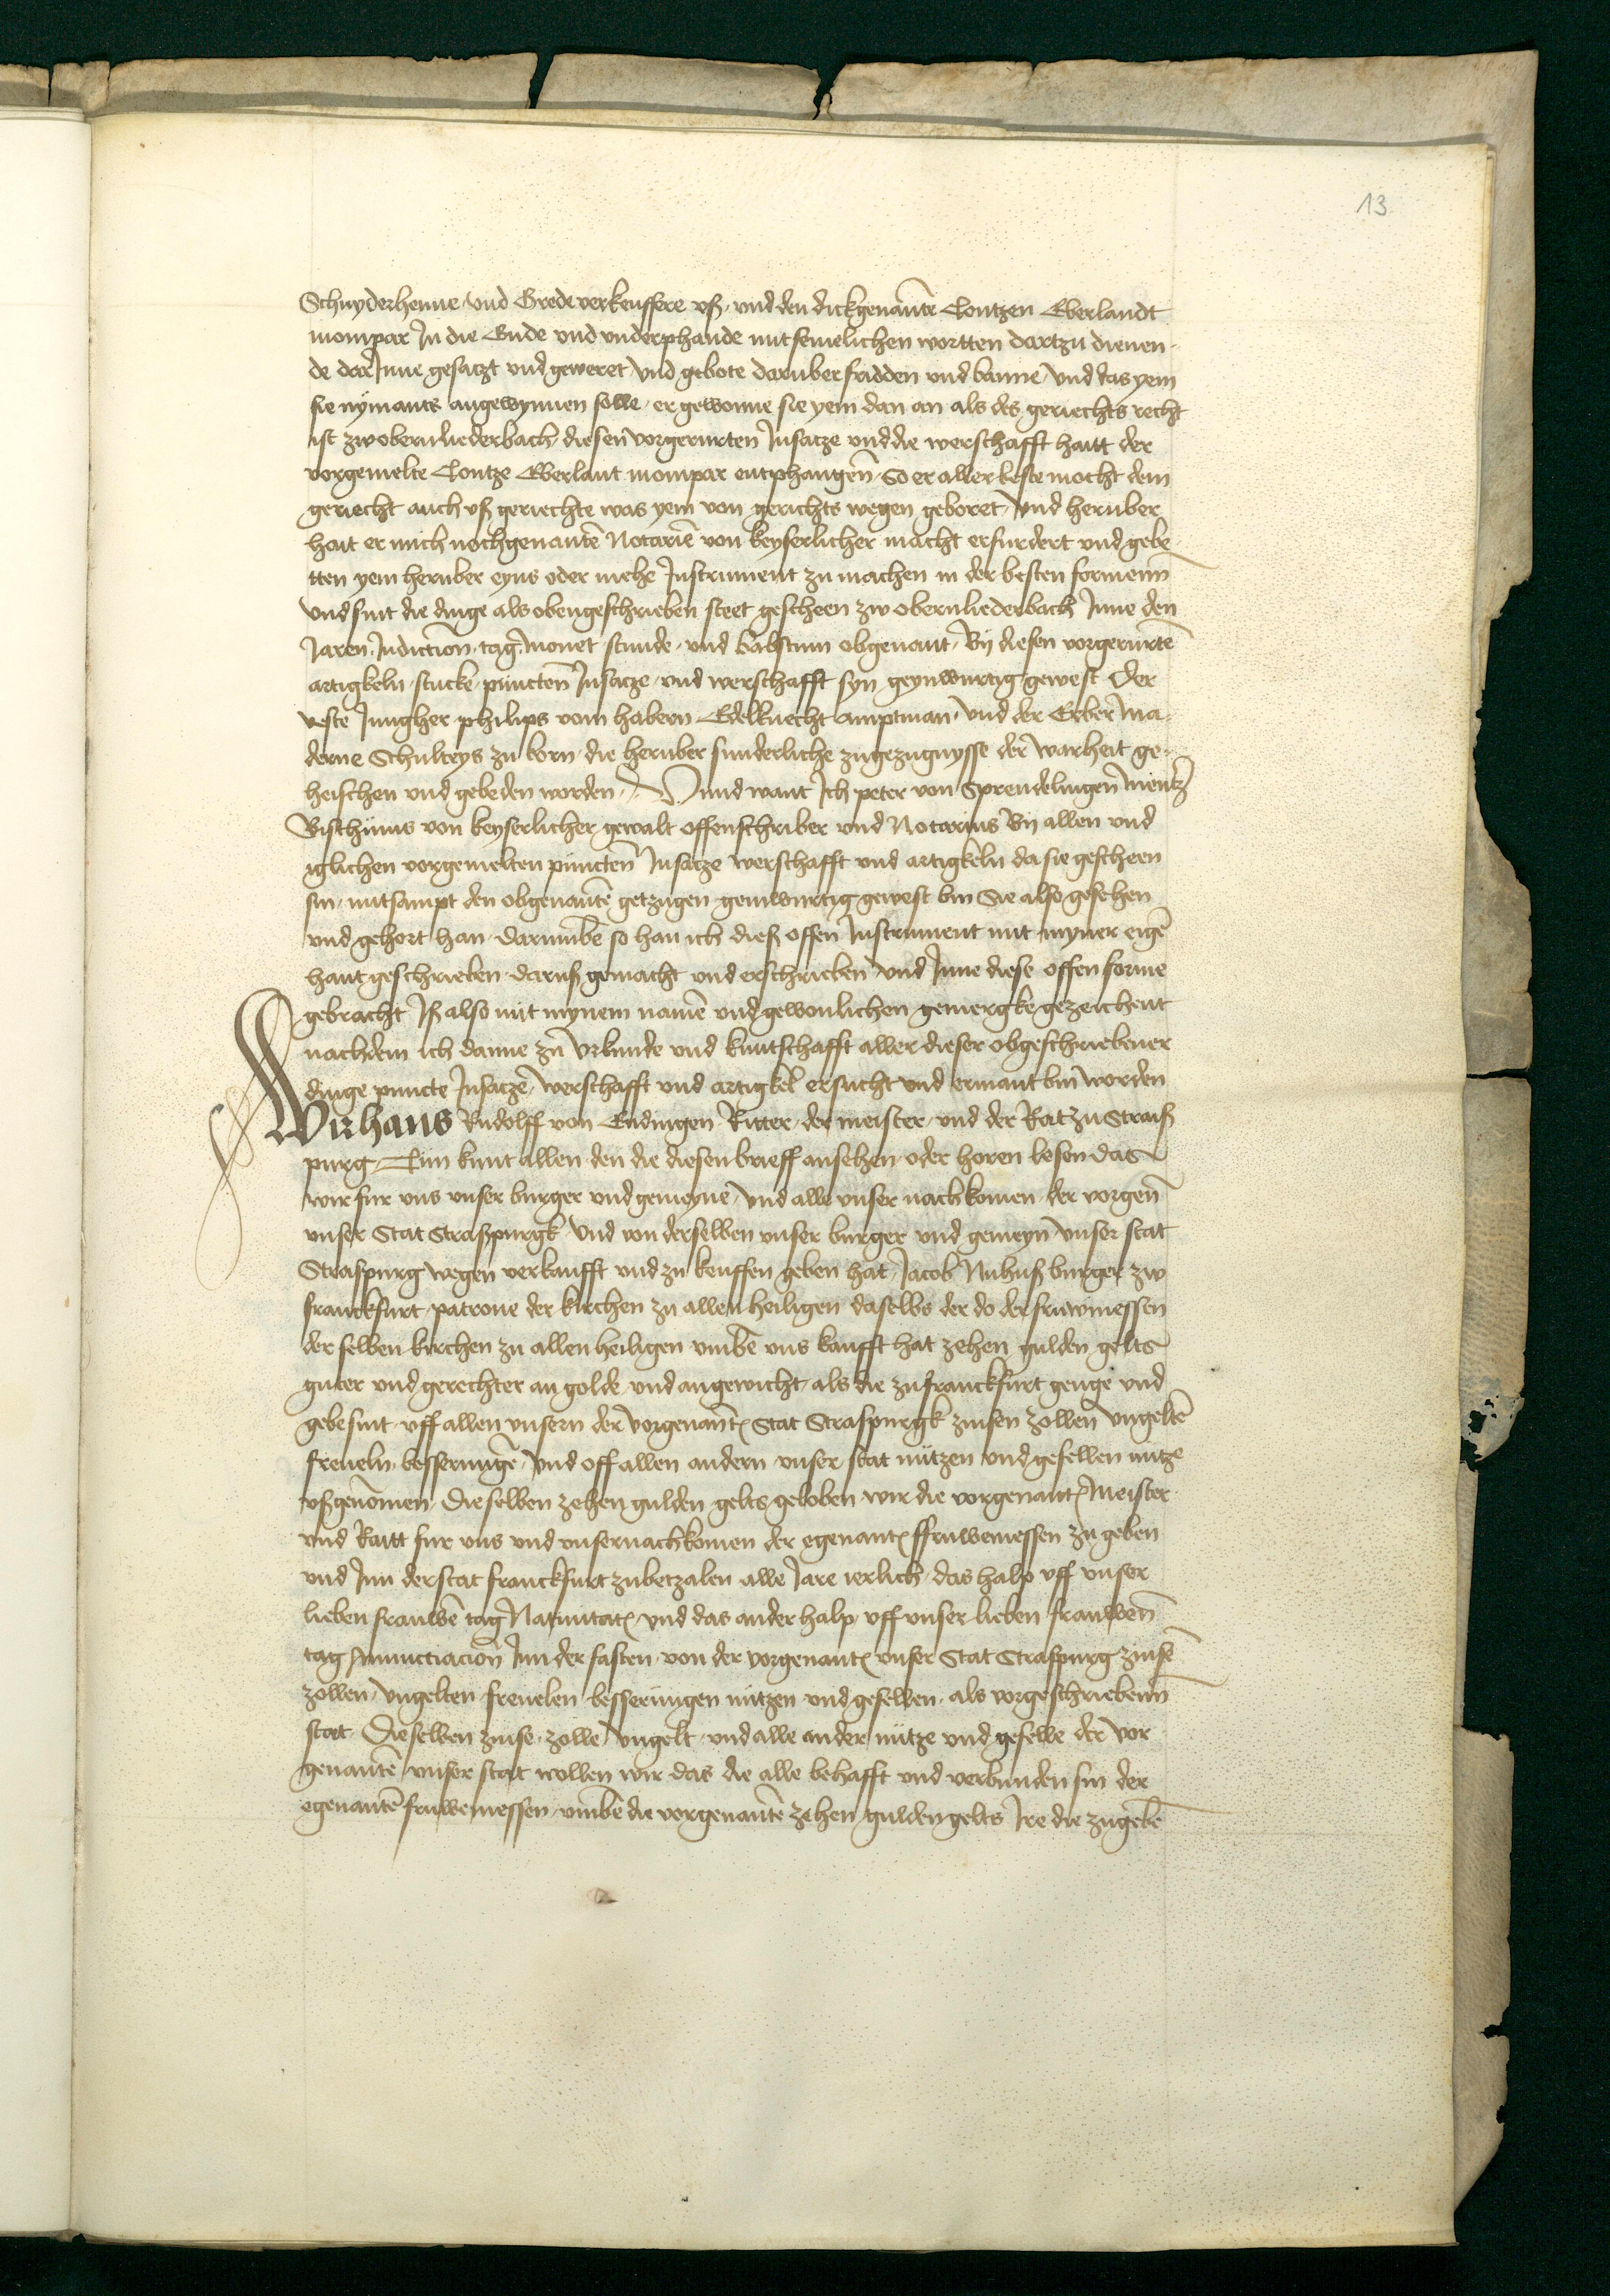 13
Schnyderhenne und Grede verkeuffere uß und den dickgenante Contzen Eberlandt
mompar In die Ende und underphande mit semelichen wortten dartzu dienen
de dar Inne gesatzt und geweret und gebote daruber fridden und banne und das yem
sie nymants angewynnen solle er gewonne sie yem dan an als des geriechts recht
ist zw obernliederbach diesen vorgerurten Insatze und die werschafft haitt der
vorgemelte Contze Eberlant mompar entphangen So er aller beste mocht dem
geriecht auch uß geriechte was yem von gerichts wegen geboret Und heruber
hait er mich nochgenante Notarie von keyserlicher macht erfurdert und gebe
tten yem heruber eyns oder mehe Instrument zu machen in der besten formenn
Und sint die dinge als obengeschrieben steet gescheen zw obernliederbach Inne den
Jaren Indiction tag monet stunde und babstum obgenant By diesen vorgerurte
artigkeln stucke puncten Insatze und werschafft syn geynwurtig gewest Der
veste Jungher philips vom habern Edelknecht amptman und der Erber Ma-
derne Schulteys zu born die heruber sunderliche zugezugnysse der warheit ge-
heischen und gebeden worden Unnd want Ich peter von Sprendelingen mentz
Bischtums von keyserlicher gewalt offenschriber und Notarius By allen und
iglichen vorgemelten puncten Insatze werschafft und artigkeln da sie gescheen
sin mitsampt den obgenante getzugen geinwurtig gewest bin Sie also gesehen
und gehort han darumbe so han ich dieß offen Instrument mit myner eige
hant geschrieben daruß gemacht und erschrieben und Inne diese offen forme
gebracht Iß also mit mynem name und gewonlichen gemergke gezeichent
nachdem ich danne zu Urkunde und kuntschafft aller dieser obgeschriebener
dinge puncte Insatze werschafft und artigkel ersucht und ermant bin worden
Wir hans Rudolff von Endingen Ritter der meister und der Rat zu Straiß
purg Tun kunt allen den die diesen brieff ansehen oder horen lesen das
wir fur uns unser burger und gemeyne und alle unser nachkomen der vorgen
unser Stat Straßpurgk und von derselben unser burger und gemeyn unser stat
Straspurg wegen verkaufft und zu keuffen geben hat Jacob Nuhuß burger zw
franckfurt patrone der kirchen zu allen heiligen daselbs der do der fruwmessen
der selben kirchen zu allen heiligen umbe uns kaufft hat zehen gulden gelts
guter und gerechter an golde und an gewicht als die zu franckfurt genge und
gebe sint uff allen unsern der vorgenant Stat Straspurgk zinsen zollen ungelte
freveln besserunge und off allen andern unser stat nützen und gefellen nütze
ußgenomen Dieselben zehen gulden gelts geloben wir die vorgenant Meister
und Raitt fur uns und unsernachkomen der egenant ffruwemessen zu geben
und Inn der stat franckfurt zubetzalen alle Jare ierlich das halp uff unser
lieben frauwe tag Nativitat und das ander halp uff unser lieben frauwen
tag Annuctiacion Inn der fasten von der vorgenant unser Stat Straspurg zinse
zollen ungelten frevelen besserungen nützen und gefellen als vorgeschriebenn
stat Dieselben zinse zolle ungelt und alle ander nütze und gefelle der vor
genante unser stat wollen wir das die alle behafft und verbunden sin der
egenante fruwemessen umbe die vorgenante zehen gulden gelts Ire die zugebe